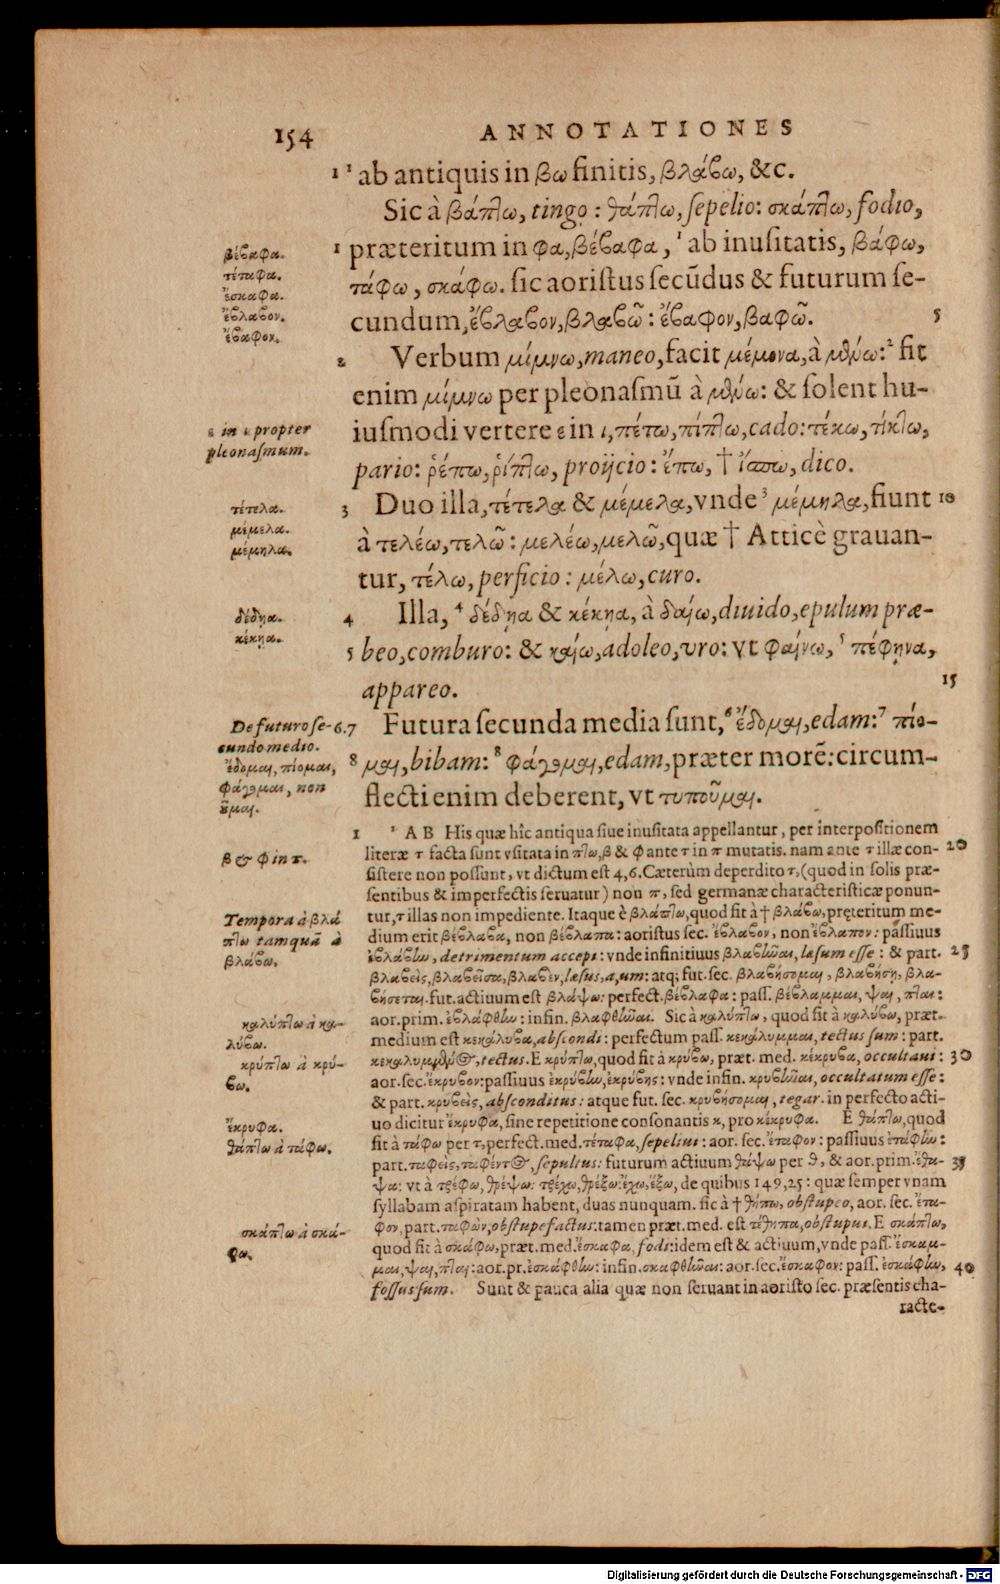 154 ANNOTATIONES
1 ¹ ab antiquis in βω finitis, βλάβω, &c.
Sic à βάπτω, tingo: θάπτω, sepelio: σκάπτω, fodio,
βέβαφα. 1 præteritum in φα, βέβαφα, ¹ ab inusitatis, βάφω,
τέταφα. τάφω, σκάφω. sic aoristus secūdus & futurum se-
ἔσκαφα.
ἔβλαβον. cundum, ἔβλαβον, βλαβῶ: ἔβαφον, βαφῶ. 5
ἔβαφον.
2 Verbum μίμνω, maneo, facit μέμονα, à μένω: ² fit
enim μίμνω per pleonasmū à μένω: & solent hu-
ε in ι propter iusmodi vertere ε in ι, πέτω, πίπτω, cado: τέκω, τίκτω,
pleonasmum. pario: ῥέπω, ῥίπτω, proijcio: ἔπω, † ἴσπω, dico.
τέτελα. 3 Duo illa, τέτελα & μέμελα, vnde ³ μέμηλα, fiunt 10
μέμελα. à τελέω, τελῶ: μελέω, μελῶ, quæ † Atticè grauan-
μέμηλα.
tur, τέλω, perficio: μέλω, curo.
δέδηα. 4 Illa, ⁴ δέδηα & κέκηα, à δαίω, diuido, epulum præ-
κέκηα.
5 beo, comburo: & καίω, adoleo, vro: vt φαίνω, ⁵ πέφηνα,
appareo. 15
De futuro se- 6.7 Futura secunda media sunt, ⁶ ἔδομαι, edam: ⁷ πίο-
cundo medio.
ἔδομαι, πίομαι, 8 μαι, bibam: ⁸ φάγομαι, edam, præter morē: circum-
φάγομαι, non
ῦμαι. flecti enim deberent, vt τυποῦμαι.
1 ¹ A B His quæ hîc antiqua siue inusitata appellantur, per interpositionem
β & φ in π. literæ τ facta sunt vsitata in πτω, β & φ ante τ in π mutatis. nam ante τ illæ con- 20
sistere non possunt, vt dictum est 4,6. Cæterùm deperdito τ, (quod in solis præ-
sentibus & imperfectis seruatur) non π, sed germanæ characteristicæ ponun-
Tempora à βλά tur, τ illas non impediente. Itaque è βλάπτω, quod fit à † βλάβω, pręteritum me-
πτω tamquā à dium erit βέβλαβα, non βέβλαπα: aoristus sec. ἔβλαβον, non ἔβλαπον: passiuus
βλάβω. ἐβλάβην, detrimentum accepi: vnde infinitiuus βλαβῆναι, læsum esse: & part. 25
βλαβεὶς, βλαβεῖσα, βλαβὲν, læsus, a, um: atq; fut. sec. βλαβήσομαι, βλαβήσῃ, βλα-
βήσεται. fut. actiuum est βλάψω: perfect. βέβλαφα: pass. βέβλαμμαι, ψαι, πται:
aor. prim. ἐβλάφθην: infin. βλαφθῆναι. Sic à καλύπτω, quod fit à καλύβω, præt.
καλύπτω à κα- medium est κεκάλυβα, abscondi: perfectum pass. κεκάλυμμαι, tectus sum: part.
λύβω.
κρύπτω à κρύ- κεκαλυμμένος, tectus. E κρύπτω, quod fit à κρύβω, præt. med. κέκρυβα, occultaui: 30
βω. aor. sec. ἔκρυβον: passiuus ἐκρύβην, ἐκρύβης: vnde infin. κρυβῆναι, occultatum esse:
& part. κρυβεὶς, absconditus: atque fut. sec. κρυβήσομαι, tegar. in perfecto acti-
ἔκρυφα. uo dicitur ἔκρυφα, sine repetitione consonantis κ, pro κέκρυφα. E θάπτω, quod
θάπτω à τάφω. fit à τάφω per τ, perfect. med. τέταφα, sepeliui: aor. sec. ἔταφον: passiuus ἐτάφην:
part. ταφεὶς, ταφέντος, sepultus: futurum actiuum θάψω per θ, & aor. prim. ἔθα- 35
ψα: vt à τρέφω, θρέψω: τρέχω, θρέξω: ἔχω, ἕξω, de quibus 149, 25: quæ semper vnam
syllabam aspiratam habent, duas nunquam. sic à † θήπω, obstupeo, aor. sec. ἔτα-
σκάπτω à σκά- φον, part. ταφὼν, obstupefactus: tamen præt. med. est τέθηπα, obstupui. E σκάπτω,
φω. quod fit à σκάφω, præt. med. ἔσκαφα, fodi: idem est & actiuum, vnde pass. ἔσκαμ-
μαι, ψαι, πται: aor. pr. ἐσκάφθην: infin. σκαφθῆναι: aor. sec. ἔσκαφον: pass. ἐσκάφην, 40
fossus sum. Sunt & pauca alia quæ non seruant in aoristo sec. præsentis cha-
racte-
Digitalisierung gefördert durch die Deutsche Forschungsgemeinschaft - DFG